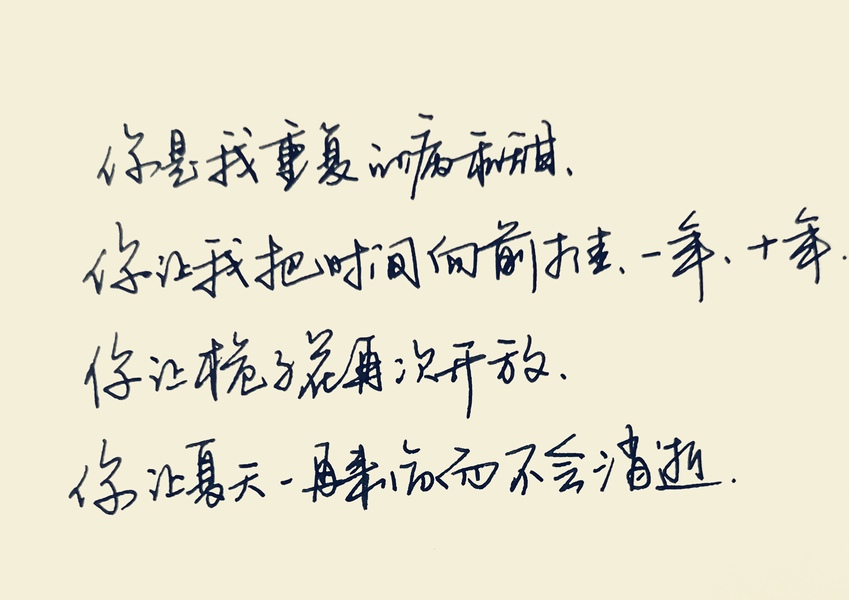 你是我重复的病和甜、
你让我把时间向前推、一年、十年.
你让栀子花再次开放.
你让夏天一再来临而不会消逝.